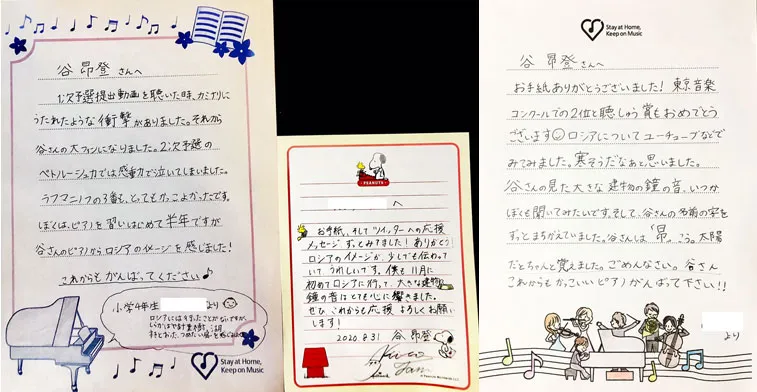 谷 昂登 さんへ
1次予選提出動画を聴いた時、カミナリに
うたれたような衝撃がありました。それから
谷さんの大ファンになりました。2次予選の
ペトルーシュカでは感動で泣いてしまいました。
ラフマニノフの3番も、とってもかっこよかったです。
ぼくは、ピアノを習いはじめて半年ですが
谷さんのピアノから ロシアのイメージを感じました!
これからも がんばってください♪
小学4年生 より
ロシアには行ったことがないですが、
Stay at Home,
Keep on Music
PEANUTS
へ
お手紙、そしてツイッターへの応援
メッセージ、ずっとみてました!ありがとう!
ロシアのイメージが、少しでも伝わって
いて、うれしいです。僕も11月に
初めてロシアに行って、大きな建物の
鐘の音はとても心に響きました。
ぜひ、これからも応援 よろしくお願い
します!
2020 8.31 谷 昂登
Stay at Home,
Keep on Music
谷 昂登 さんへ
お手紙ありがとうございました! 東京音楽
コンクールでの2位と聴しゅう賞もおめでとう
ございます ロシアについてユーチューブなどで
みてみました。寒そうだなぁと思いました。
谷さんの見た大きな 建物の鐘の音、いつか
ぼくも聞いてみたいです。そして、谷さんの名前の字を
ずっとまちがえていました。谷さんは「昂」こう。太陽
だとちゃんと覚えました。ごめんなさい。谷さん
これからもかっこいいピアノがんばって下さい!!
より